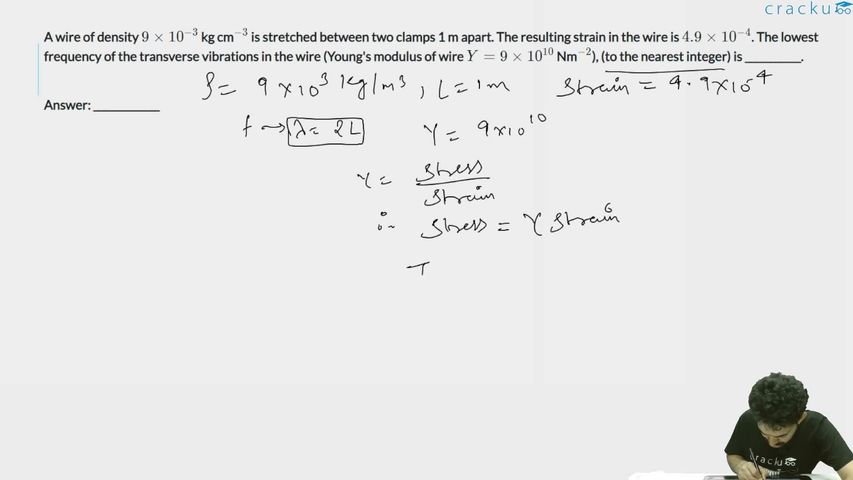 cracku
A wire of density 9 × 10⁻³ kg cm⁻³ is stretched between two clamps 1 m apart. The resulting strain in the wire is 4.9 × 10⁻⁴. The lowest
frequency of the transverse vibrations in the wire (Young's modulus of wire Y = 9 × 10¹⁰ Nm⁻²), (to the nearest integer) is ________.
ρ = 9×10³ kg/m³, L = 1m Strain = 4.9×10⁻⁴
Answer: ___________
f → λ = 2L Y = 9×10¹⁰
Y = Stress / Strain
∴ Stress = Y Strain
T
cracku